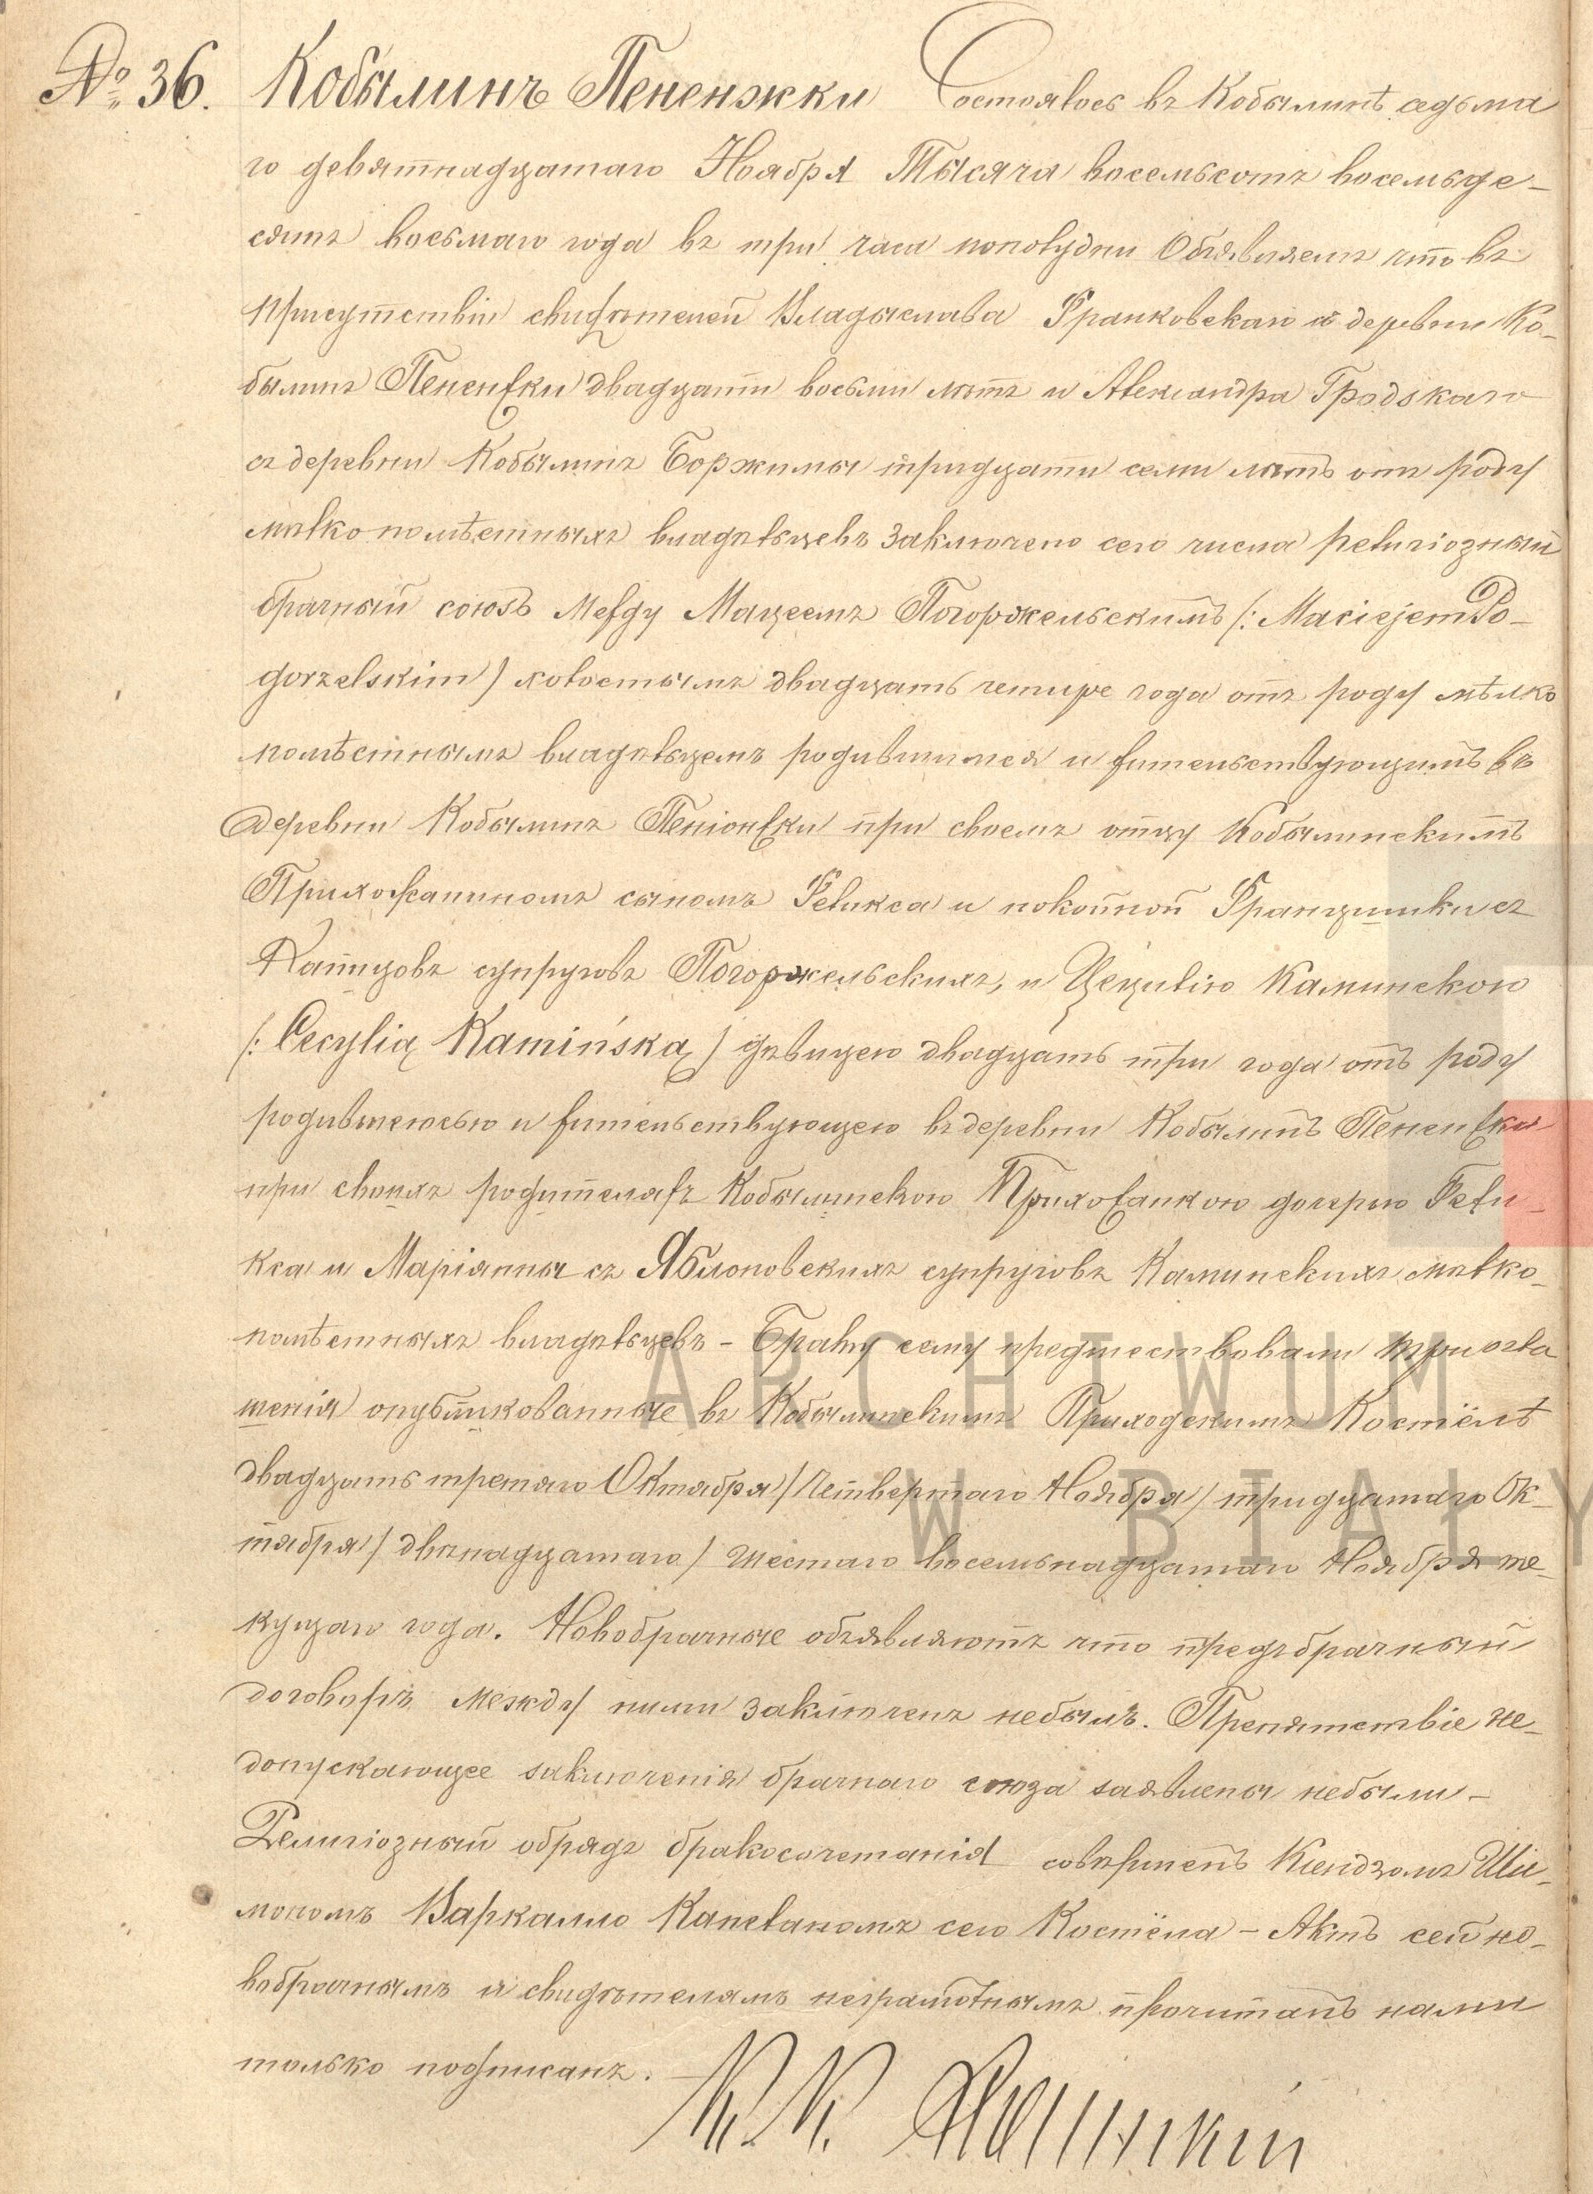 № 36. Кобылинъ Пененжки Состоялось въ Кобылинѣ седьма
го девятнадцатаго Ноября Тысяча восемьсотъ восемьде-
сятъ восьмаго года въ три часа пополудни Объявляемъ что въ
присутствіи свидѣтелей Владыслава Франковскаго съ деревни Ко-
былинъ Пененжки двадцати восьми лѣтъ и Александра Гродскаго
съ деревни Кобылинъ Боржимы тридцати семи лѣтъ отъ роду
мѣлкопомѣстныхъ владѣльцевъ заключено сего числа религіозный
брачный союзъ между Мацеемъ Погоржельскимъ /: Maciejem Po-
gorzelskim / холостымъ двадцать четыре года отъ роду мѣлко
помѣстнымъ владѣльцемъ родившимся и жительствующимъ въ
деревни Кобылинъ Пеніонжки при своемъ отцу Кобылинскимъ
Прихожаниномъ сыномъ Феликса и покойной Францишки съ
супруговъ Погоржельскихъ, и Цецилію Каминскою
/: Cecylią Kamińską / дѣвицею двадцать три года отъ роду
родившеюсью и жительствующею въ деревни Кобылинъ Пененжки
при своихъ родителяхъ Кобылинскою Прихожанкою дочерью Фели-
кса и Маріанны съ Яблоновскихъ супруговъ Каминскихъ мѣлко-
помѣстныхъ владѣльцевъ - Браку сему предшествовали три огла
шенія опубликованные въ Кобылинскимъ Приходскимъ Костёлѣ
двадцать третяго Октября / Четвертаго Ноября / тридцатаго Ок-
тября / двѣнадцатаго / шестаго восемьнадцатаго Ноября те-
кущаго года. Новобрачные объявляютъ что предъбрачный
договоръ между ними заключенъ небылъ. Препятствіе не-
допускающее заключенія брачнаго союза заявлены небыли -
Религіозный обрядъ бракосочетанія совершенъ Ксендзомъ Ши-
мономъ Варкалло Капеланомъ сего Костёла - Актъ сей но-
вобрачнымъ и свидѣтелямъ неграмотнымъ прочитанъ нами
только подписанъ.
ARCHIWUM
W BIAŁY